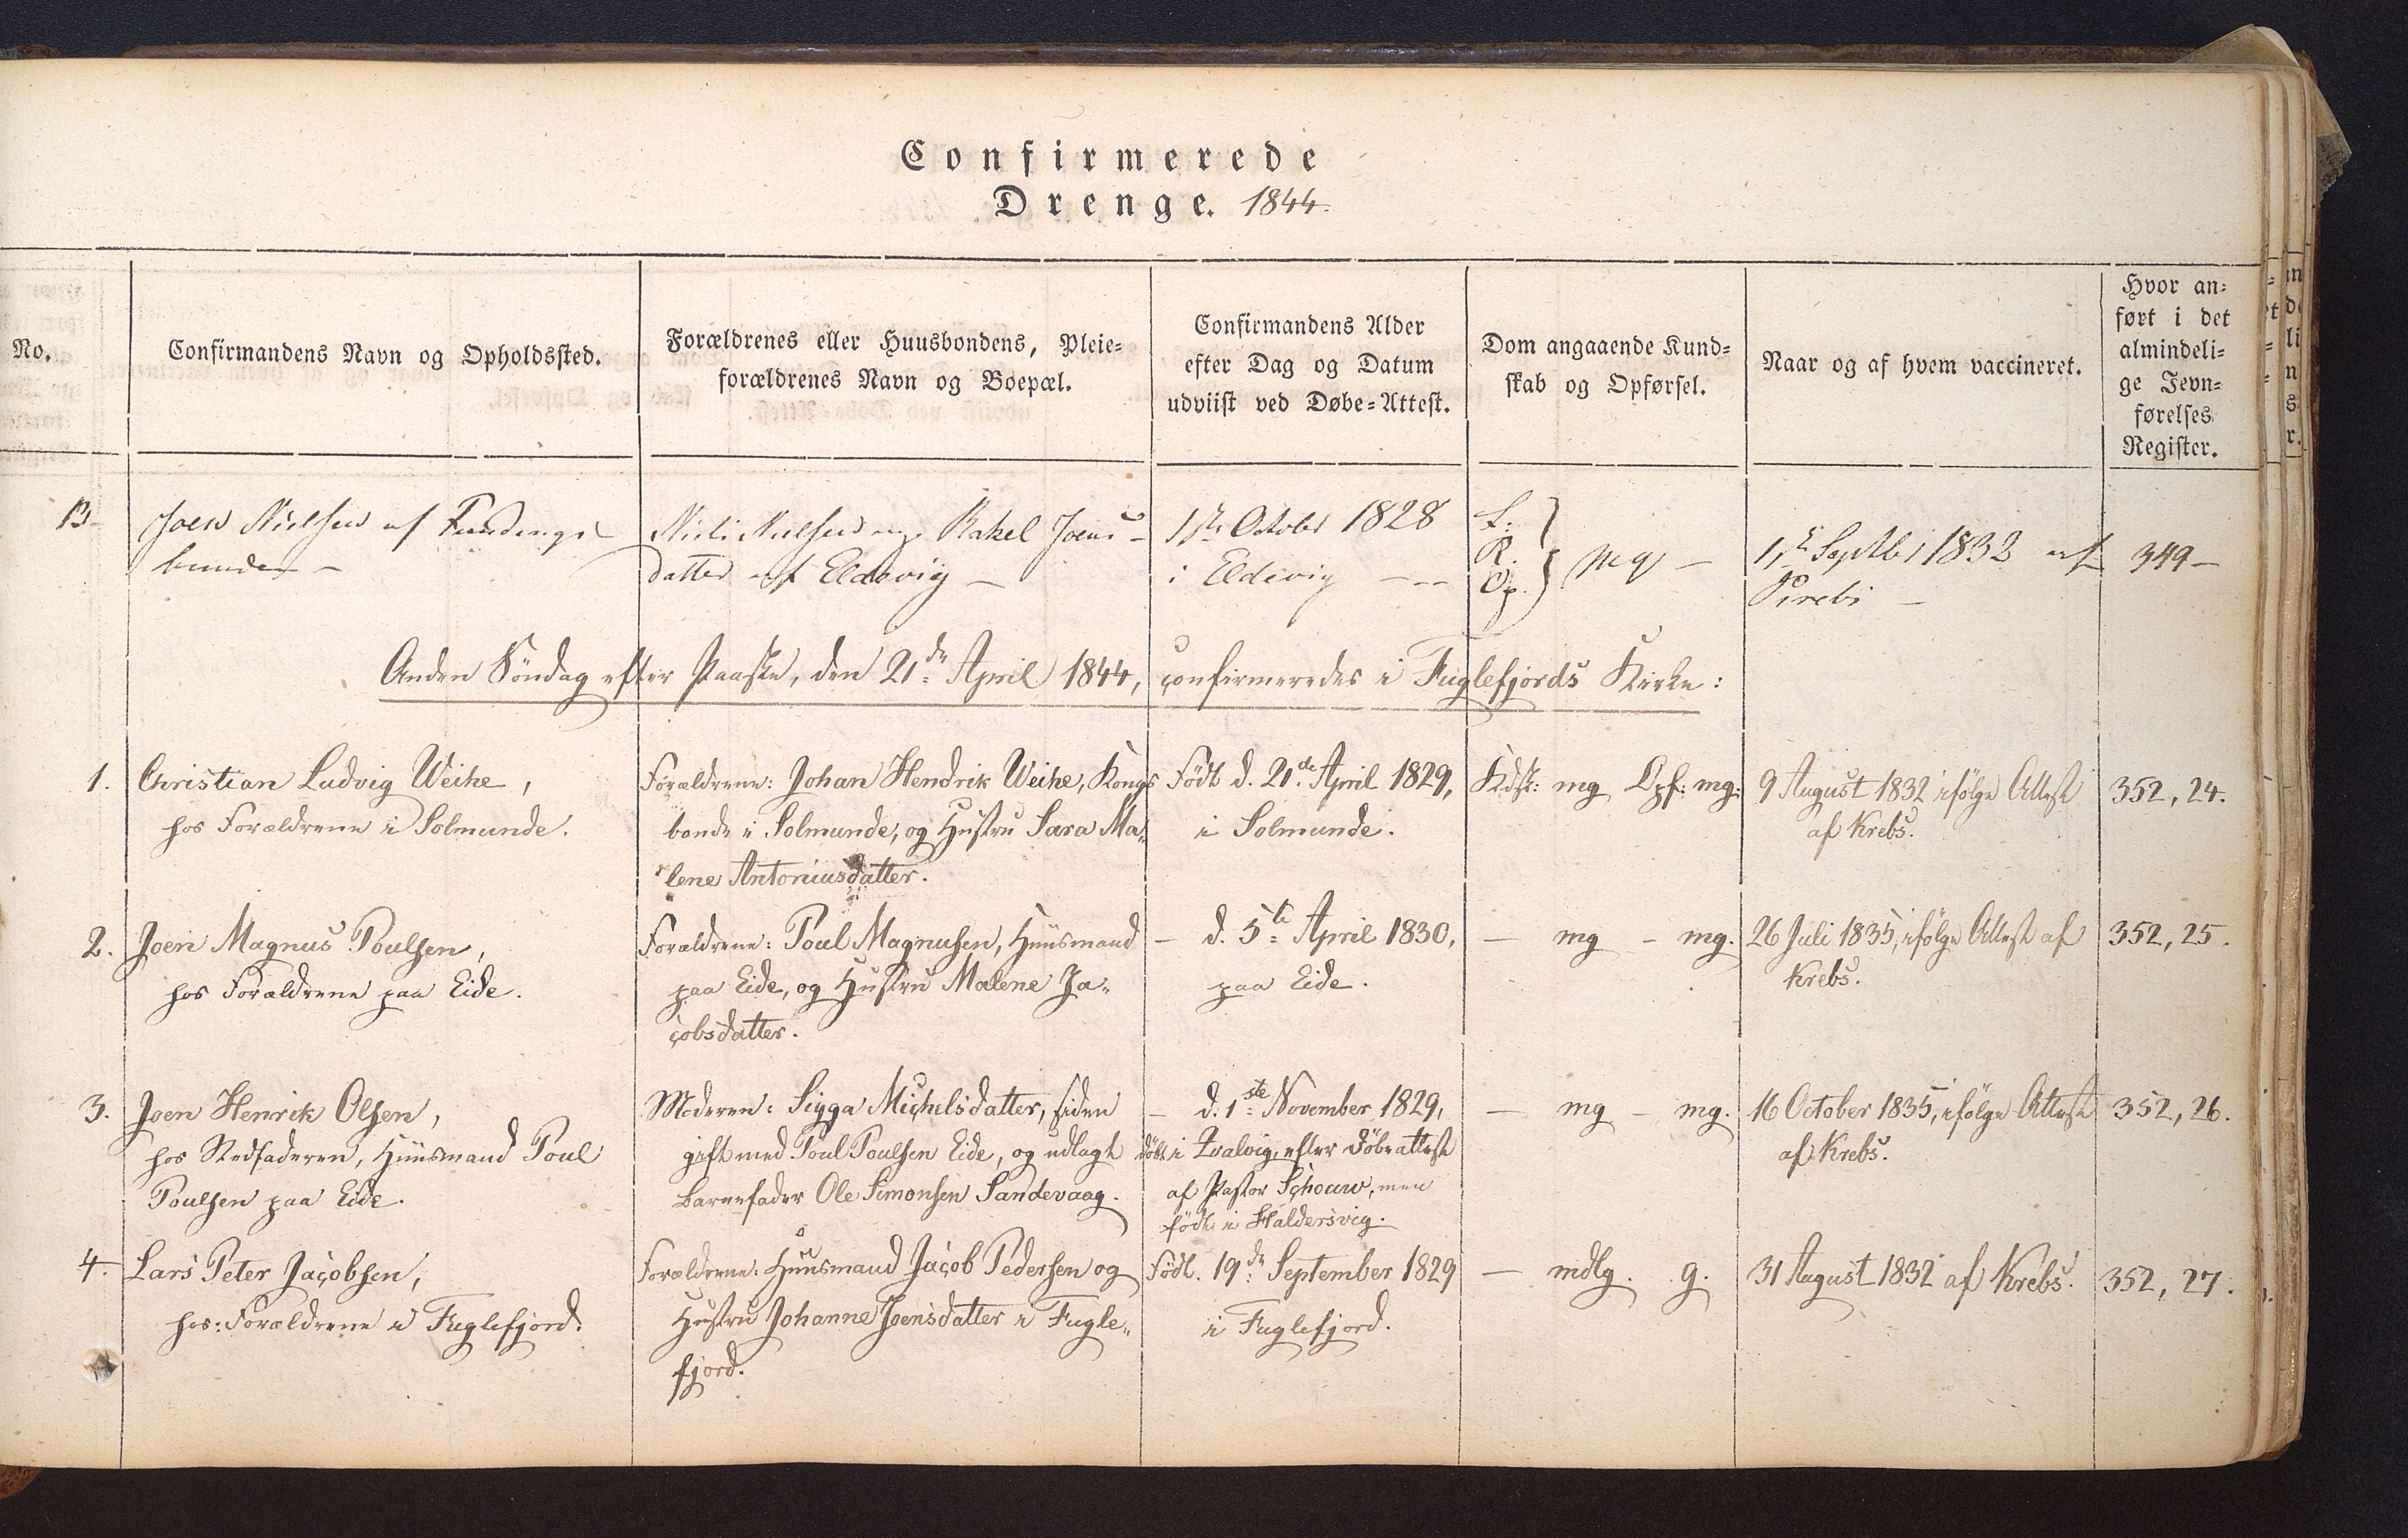 Confirmerede
Drenge. 1844.
No.
Confirmandens Navn og Opholdssted.
Forældrenes eller Huusbondens, Pleie=
forældrenes Navn og Boepæl.
Confirmandens Alder
efter Dag og Datum
udviist ved Døbe=Attest.
Dom angaaende Kund=
skab og Opførsel.
Naar og af hvem vaccineret.
Hvor an=
ført i det
almindeli=
ge Jevn=
førelses
Register.
13
Joen Nielsen af Fundings
bunden –
Niels Nielsen og Rakel Joens
datter af Eldevig –
1ste October 1828
i Eldevig
L:
R.
Op.
mg –
1ste Septbr 1832 af
349 –
Anden Söndag efter Paaske, den 21de April 1844, confirmeredes i Fuglefjords Kirke:
1.
Christian Ludvig Weihe,
hos Forældrene i Solmunde.
Forældrene: Johan Hendrik Weihe, Kongs
bonde i Solmunde, og Hustru Sara Ma=
lene Antoniusdatter.
Födt d. 21de April 1829,
i Solmunde.
Kdsk: mg Opf: mg:
9 August 1832 ifölge Attest
af Krebs.
352, 24.
2.
Joen Magnus Poulsen,
hos Forældrene paa Eide.
Forældrene: Poul Magnusen, Huusmand
paa Eide, og Hustru Malene Ja=
cobsdatter.
– d. 5te April 1830,
paa Eide.
– mg – mg.
26 Juli 1835, ifölge Attest af
Krebs.
352, 25.
3.
Joen Henrik Olsen,
hos Stedfaderen, Huusmand Poul
Poulsen paa Eide.
Moderen: Sigga Michelsdatter, siden
gift med Poul Poulsen Eide, og udlagt
Barnefader Ole Simonsen Sandevaag.
– d. 1ste November 1829,
döbt i Qvalvig, efter Döbeattest
af Pastor Schouw, men
födt i Haldersvig.
– mg – mg.
16 October 1835, ifölge Attest
af Krebs.
352, 26.
4.
Lars Peter Jacobsen,
hos Forældrene i Fuglefjord.
Forældrene: Huusmand Jacob Pedersen og
Hustru Johanne Joensdatter i Fugle=
fjord.
Födt. 19de September 1829
i Fuglefjord.
– mdlg. g.
31 August 1832 af Krebs.
352, 27.